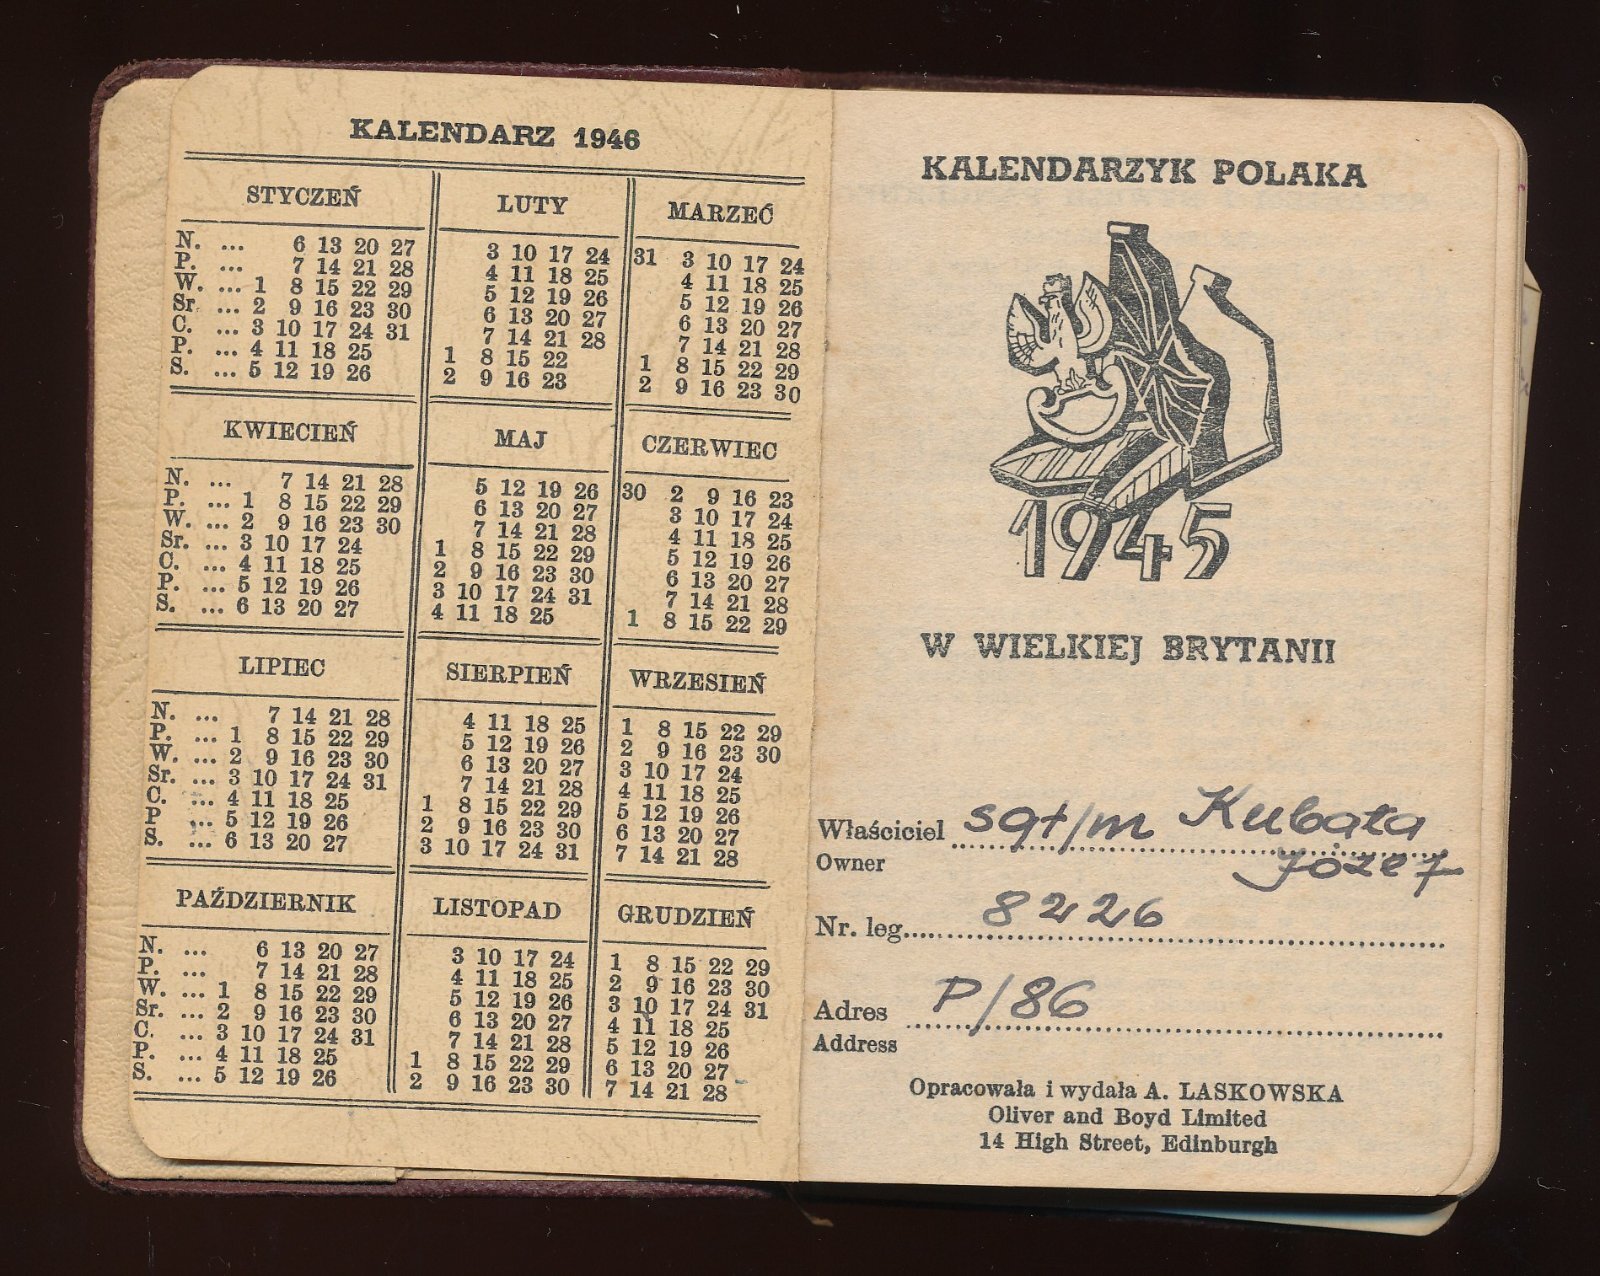 KALENDARZ 1946
STYCZEŃ
N. ... 6 13 20 27
P. ... 7 14 21 28
W. ... 1 8 15 22 29
Sr. ... 2 9 16 23 30
C. ... 3 10 17 24 31
P. ... 4 11 18 25
S. ... 5 12 19 26
LUTY
3 10 17 24
4 11 18 25
5 12 19 26
6 13 20 27
7 14 21 28
1 8 15 22
2 9 16 23
MARZEĆ
31 3 10 17 24
4 11 18 25
5 12 19 26
6 13 20 27
7 14 21 28
1 8 15 22 29
2 9 16 23 30
KWIECIEŃ
N. ... 7 14 21 28
P. ... 1 8 15 22 29
W. ... 2 9 16 23 30
Sr. ... 3 10 17 24
C. ... 4 11 18 25
P. ... 5 12 19 26
S. ... 6 13 20 27
MAJ
5 12 19 26
6 13 20 27
7 14 21 28
1 8 15 22 29
2 9 16 23 30
3 10 17 24 31
4 11 18 25
CZERWIEC
30 2 9 16 23
3 10 17 24
4 11 18 25
5 12 19 26
6 13 20 27
7 14 21 28
1 8 15 22 29
LIPIEC
N. ... 7 14 21 28
P. ... 1 8 15 22 29
W. ... 2 9 16 23 30
Sr. ... 3 10 17 24 31
C. ... 4 11 18 25
P ... 5 12 19 26
S. ... 6 13 20 27
SIERPIEŃ
4 11 18 25
5 12 19 26
6 13 20 27
7 14 21 28
1 8 15 22 29
2 9 16 23 30
3 10 17 24 31
WRZESIEŃ
1 8 15 22 29
2 9 16 23 30
3 10 17 24
4 11 18 25
5 12 19 26
6 13 20 27
7 14 21 28
PAŹDZIERNIK
N. ... 6 13 20 27
P. ... 7 14 21 28
W. ... 1 8 15 22 29
Sr. ... 2 9 16 23 30
C. ... 3 10 17 24 31
P. ... 4 11 18 25
S. ... 5 12 19 26
LISTOPAD
3 10 17 24
4 11 18 25
5 12 19 26
6 13 20 27
7 14 21 28
1 8 15 22 29
2 9 16 23 30
GRUDZIEŃ
1 8 15 22 29
2 9 16 23 30
3 10 17 24 31
4 11 18 25
5 12 19 26
6 13 20 27
7 14 21 28
KALENDARZYK POLAKA
1945
W WIELKIEJ BRYTANII
Właściciel sgt/m Kubała
Owner Józef
Nr. leg. 8226
Adres P/86
Address
Opracowała i wydała A. LASKOWSKA
Oliver and Boyd Limited
14 High Street, Edinburgh